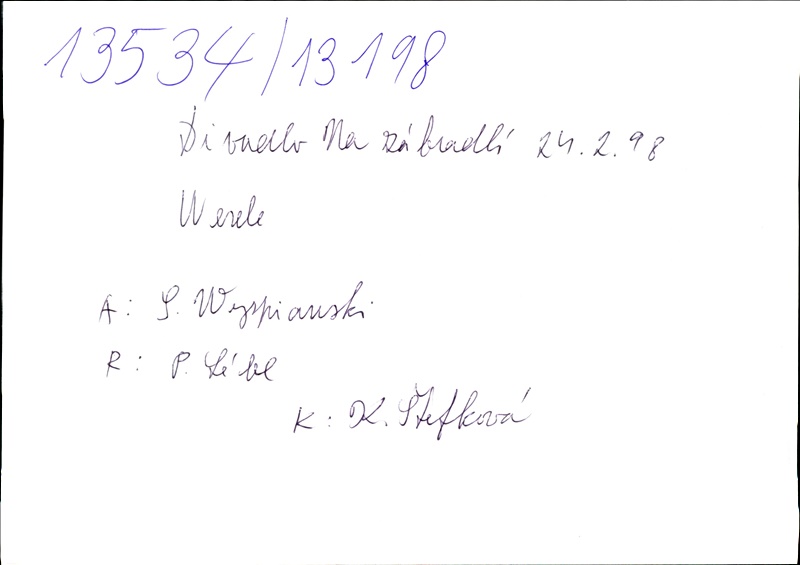 13534/13198
Divadlo Na zábradlí 24.2.98
Wesele
A: S. Wyspianski
R: P. Lébl
K: K. Štefková